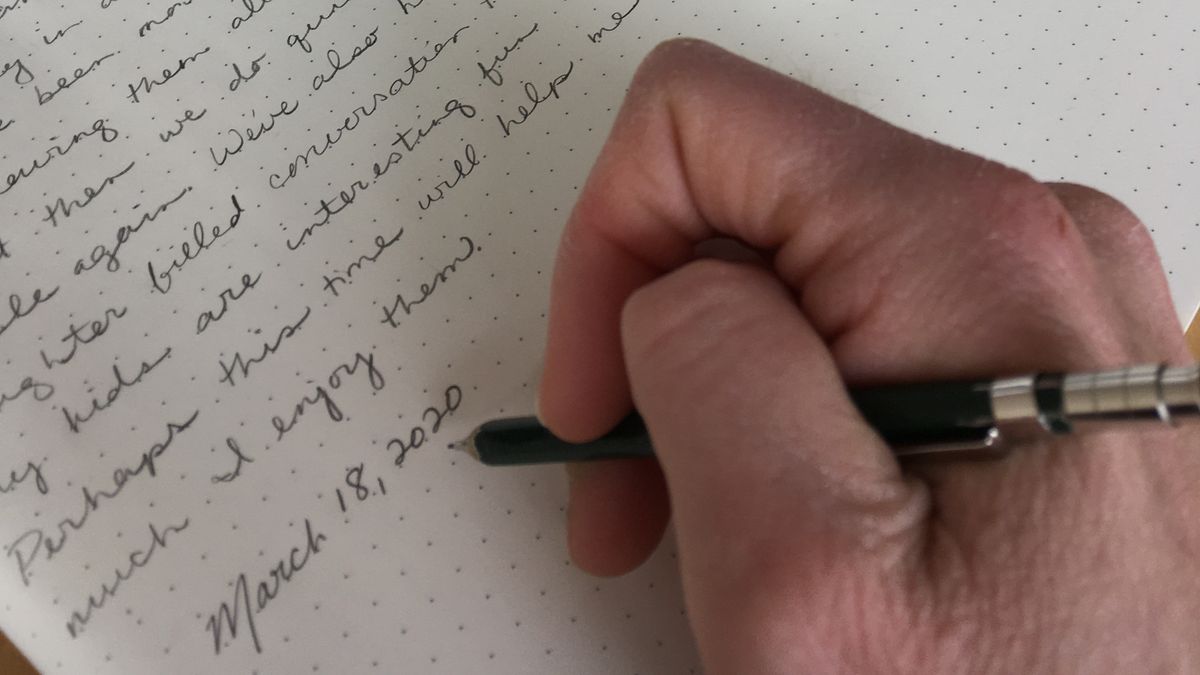 in
been
them
then we do
again. We've also
filled conversation
kids are interesting fun
Perhaps this time will help me
much I enjoy them.
March 18, 2020